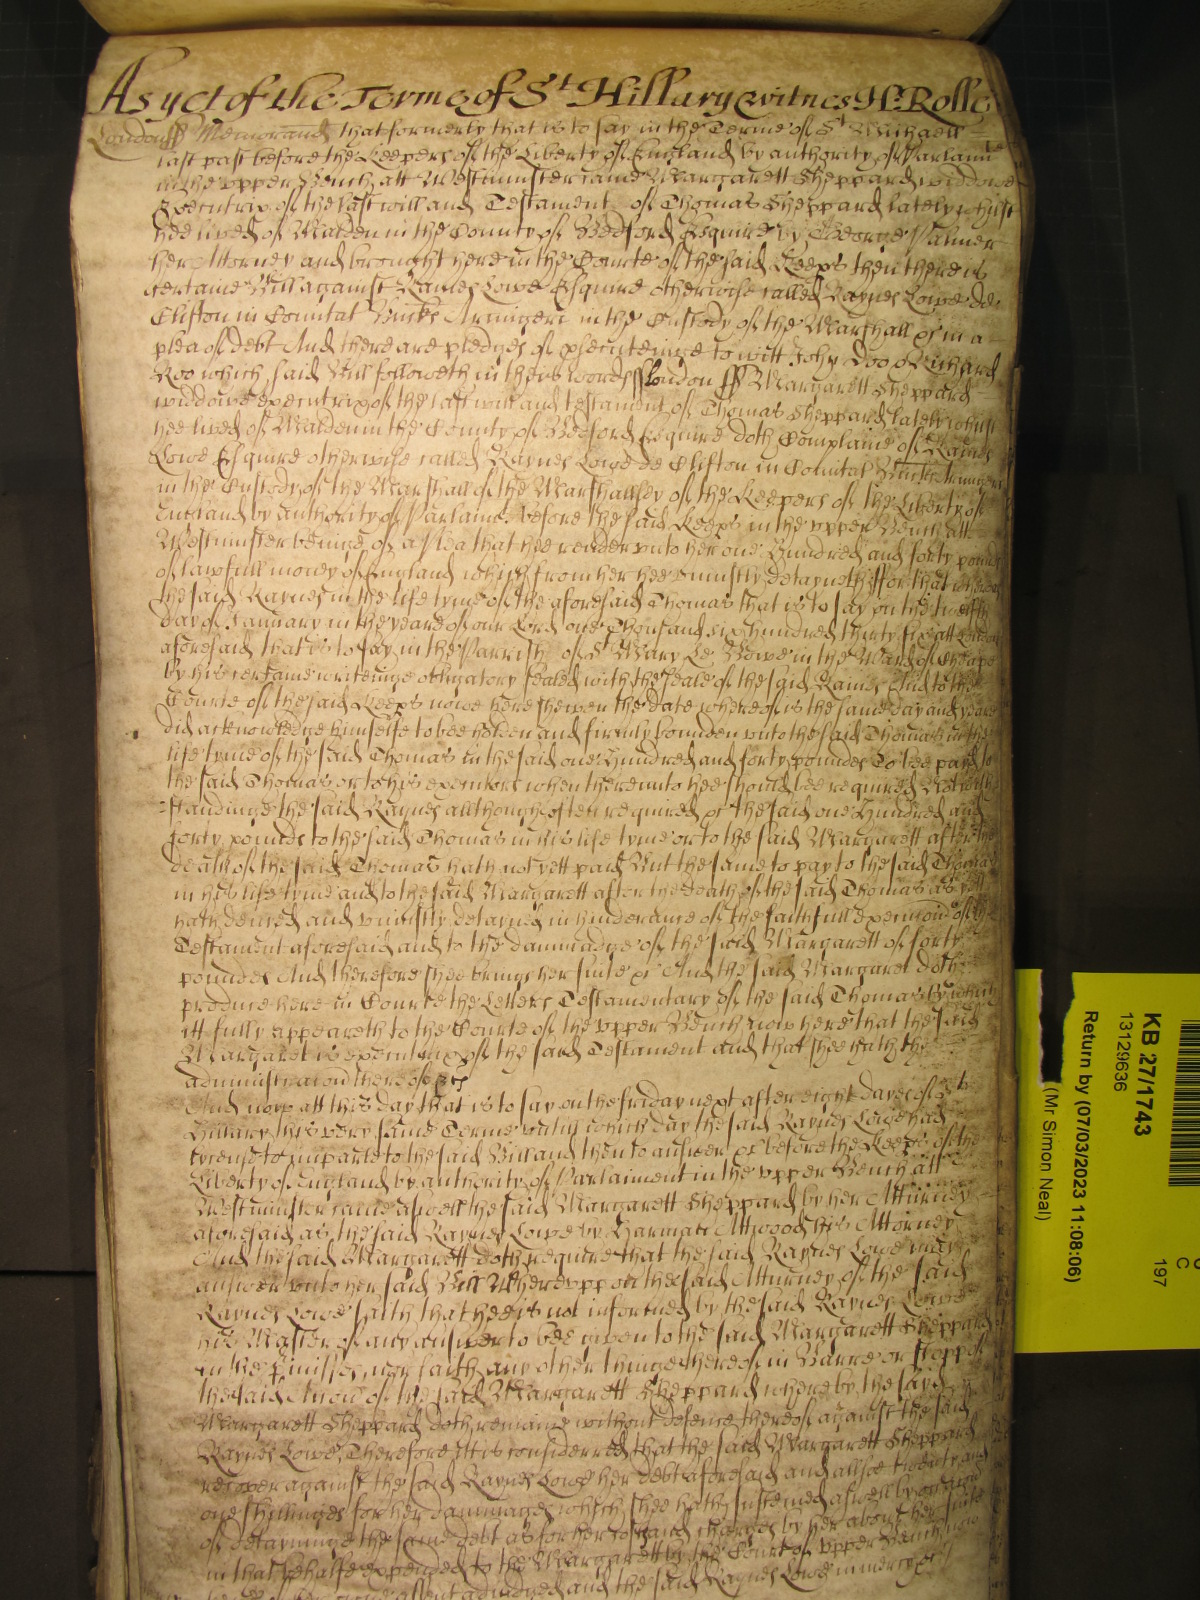 As yet of the Terme of St Hillary witnes H: Rolle
London ss Memorand that formerly that is to say in the Terme of St Michaell
last past before the Keepers of the Liberty of England by authority of Parliamt
in the upper Bench att Westminster came Margarett Sheppard widdowe
Executrix of the last will and Testament of Thomas Sheppard lately whilst
hee lived of Malden in the County of Bedford Esquire by George Palmer
her Attorney and brought here in the Courte of the said Keeps then there is
certaine Bill against Raines Lowe Esquire otherwise called Raynes Lowe de
Clifton in Comitat Bucks Armigeri in the Custody of the Marshall &c in a
plea of debt And there are pledges of prsecuteinge to witt John Doo & Richard
Roo which said Bill followeth in theis wordes ss London ss Margarett Sheppard
widdowe executrix of the last will and testament of Thomas Sheppard lately whilst
hee lived of Malden in the County of Bedford Esquire doth Complaine of Raines
Lowe Esquire otherwise called Raynes Lowe de Clifton in Comitat Bucks Armigeri
in the Custody of the Marshall of the Marshallsey of the Keepers of the Liberty of
England by authority of Parliamt before the said Keeps in the upper Bench att
Westminster beinge of a Plea that hee render unto her one Hundred and forty pounds
of lawfull money of England which from her hee uniustly detayneth ss for that whereas
the said Raynes in the life tyme of the aforesaid Thomas that is to say on the twelfth
day of January in the yeare of our Lord one Thousand six hundred thirty six att London
aforesaid that is to say in the Parrish of St Mary Le Bowe in the Ward of Cheape
by his certaine writeinge obligatory sealed with the seale of the said Raines And to the
Courte of the said Keeps nowe here shewen the date whereof is the same day and yeare
did acknowledge himselfe to bee holden and firmly bounden unto the said Thomas in the
life tyme of the said Thomas in the said one Hundred and forty poundes To bee payd to
the said Thomas or to his executors when thereunto hee should bee required Notwith
standinge the said Raynes allthough often required &c the said one Hundred and
forty pounds to the said Thomas in his life tyme or to the said Margarett after the
death of the said Thomas hath not yett paid But the same to pay to the said Thomas
in his life tyme and to the said Margarett after the death of the said Thomas as yett
hath denied and uniustly detayned in hinderance of the faithfull execucion of the
Testament aforesaid and to the dammadge of the said Margarett of forty
poundes And therefore shee brings her suite &c And the said Margaret doth
produce here in Courte the Letters Testamentary of the said Thomas By which
itt fully appeareth to the Courte of the upper Bench now here that the said
Margaret is executrix of the said Testament and that shee hath the
administracion thereof &c
And now att this day that is to say on the friday next after eight dayes of St
Hillary this very same Terme untill which day the said Raynes Lowe had
lycence to imparle to the said Bill and then to answer &c before the Keeps of the
Liberty of England by authority of Parlaiment in the upper Bench att
Westminster came aswell the said Margarett Sheppard by her Atturney
aforesaid as the said Raynes Lowe by Harman Attwood his Attorney
And the said Margarett doth require that the said Raynes Lowe may
answer unto her said Bill Whereuppon the said Atturney of the said
Raynes Lowe saith that hee is not informed by the said Raynes Lowe
his Master of any answer to bee given to the said Margarett Sheppard
in the Pmisses nor saith any other thinge thereof in Barre or stoppe of
the said Accon of the said Margarett Sheppard whereby the sayd
Margarett Sheppard doth remaine without defence thereof against the said
Raynes Lowe, Therefore itt is considerred that the said Margarett Sheppard
recover against the said Raynes Lowe her debt aforesaid and allsoe twenty and
one shillinges for her dammages which shee hath susteined aswell by occasion
of detayninge the same debt as for her costs and charges by her about her suite
in that behalfe expended to the Margarett by the Court of upper Bench now
assent adiudged and the said Raynes Lowe in mercy &c
KB 27/1743
13129636
Return by (07/03/2023 11:08:06)
(Mr Simon Neal)
C
197